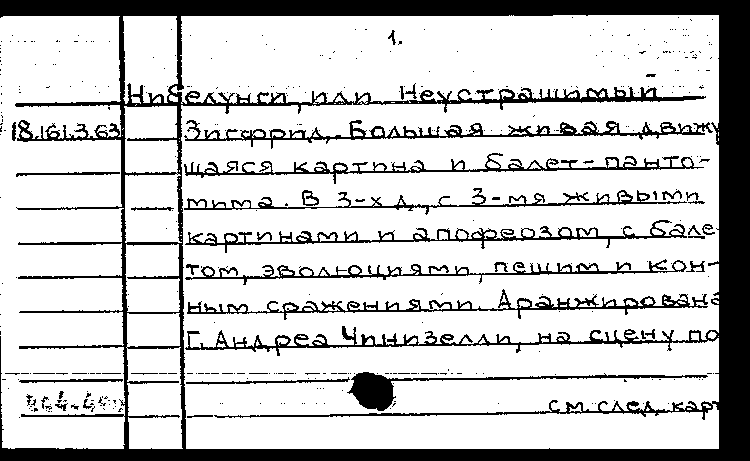 1.
Нибелунги, или Неустрашимый
18.161.3.63 Зигфрид. Большая живая движу
щаяся картина и балет-панто-
мима. В 3-х д., с 3-мя живыми
картинами и апофеозом, с бале
том, эволюциями, пешим и кон-
ным сражениями. Аранжирована
Г. Андреа Чинизелли, на сцену по
см. след. карт